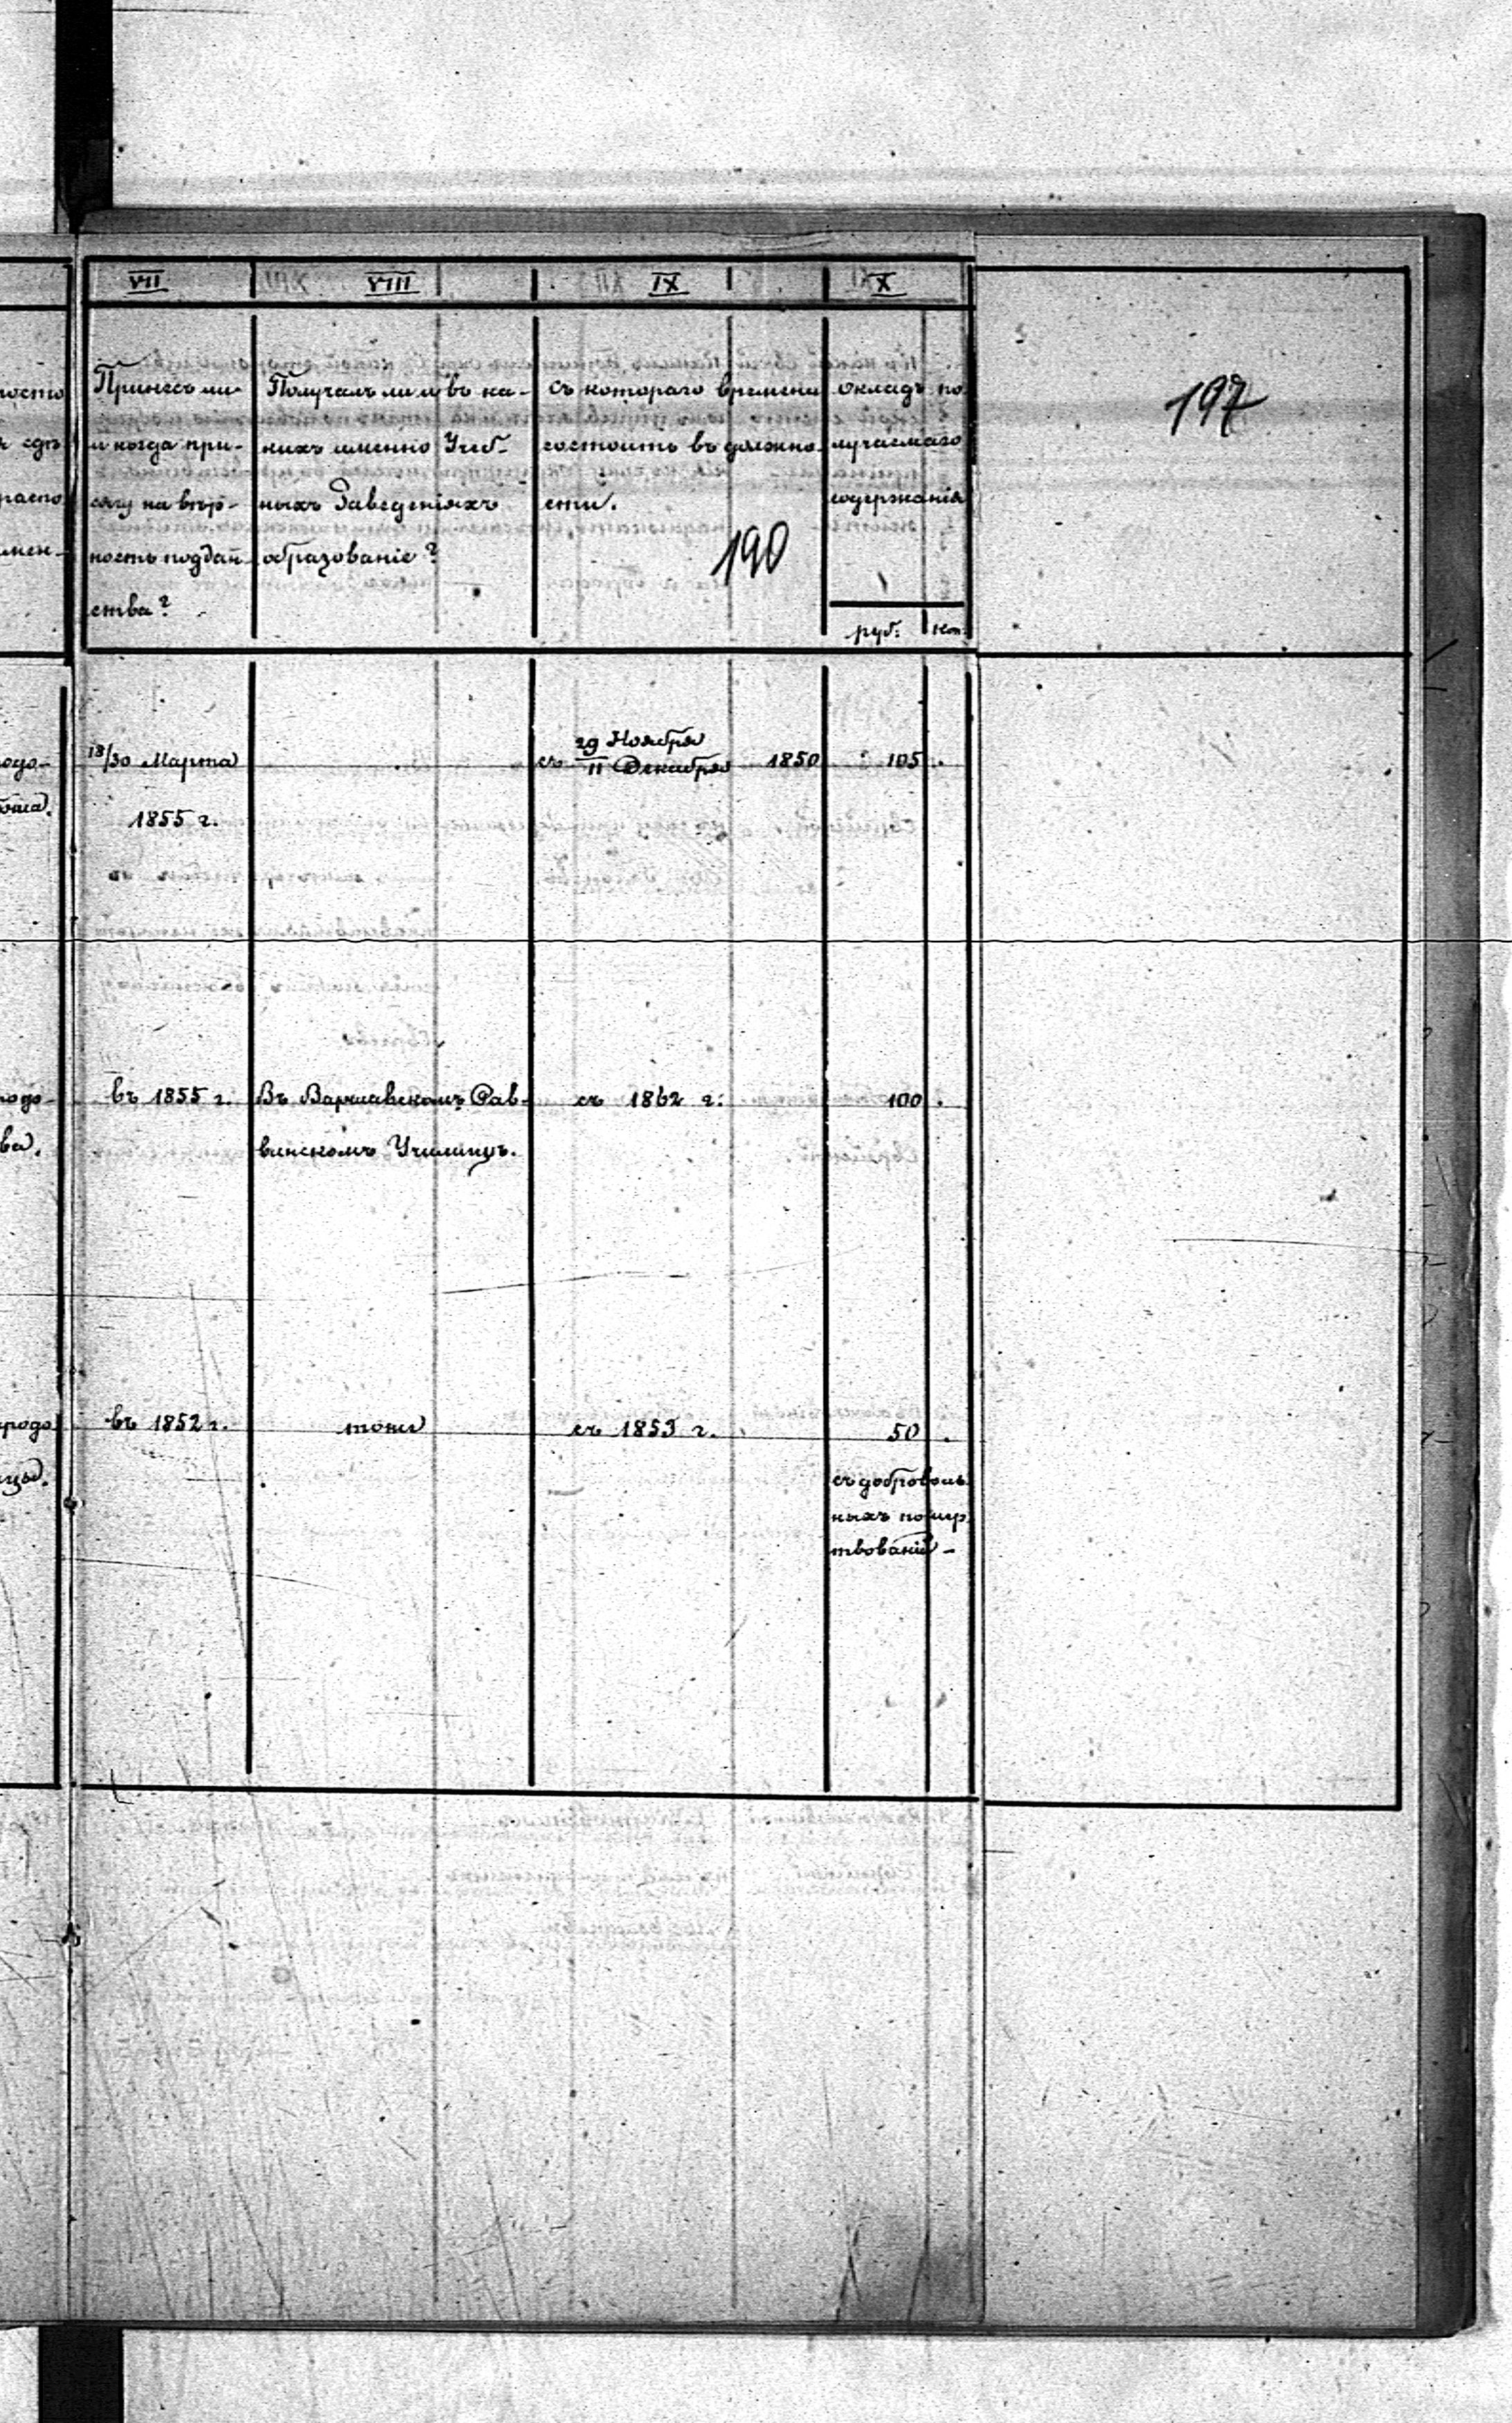 VII VIII IX X
Принесъ ли
и когда при-
сягу на вѣр-
ность поддан-
ства?
Получалъ ли и въ ка-
кихъ именно Учеб-
ныхъ Заведеніяхъ
образованіе?
Съ котораго времени
состоитъ въ должно-
сти.
190
окладъ по
лучаемаго
содержанія
руб. коп.
197
18/30 Марта
1855 г.
съ 29 Ноября
11 Декабря 1850
105 .
въ 1855 г. Въ Варшавскомъ Рав- съ 1862 г. 100 .
винскомъ Училищѣ.
въ 1852 г. тоже съ 1853 г. 50 .
съ доброволь
ныхъ пожер
твованій -